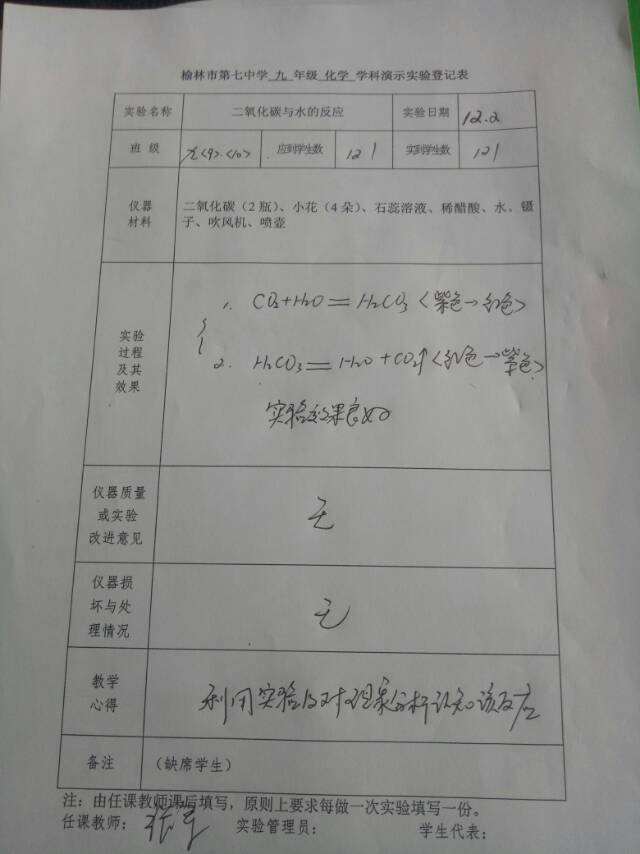 榆林市第七中学 九 年级 化学 学科演示实验登记表
实验名称 二氧化碳与水的反应 实验日期 12.2
班 级 九<9>.<10> 应到学生数 121 实到学生数 121
仪器
材料
二氧化碳（2 瓶）、小花（4 朵）、石蕊溶液、稀醋酸、水、镊
子、吹风机、喷壶
实验
过程
及其
效果
1. CO₂+H₂O＝H₂CO₃<紫色→红色>
2. H₂CO₃＝H₂O+CO₂↑<红色→紫色>
实验效果良好
仪器质量
或实验
改进意见
无
仪器损
坏与处
理情况
无
教学
心得
利用实验及对现象分析认知该反应
备注 （缺席学生）
注：由任课教师课后填写，原则上要求每做一次实验填写一份。
任课教师： 实验管理员： 学生代表：